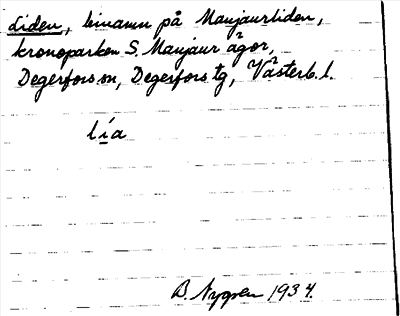 Liden, binamn på Manjaurliden,
kronoparken S. Manjaur ägor,
Degerfors sn, Degerfors tg, Västerb. l.
lía
B. Nygren 1934.